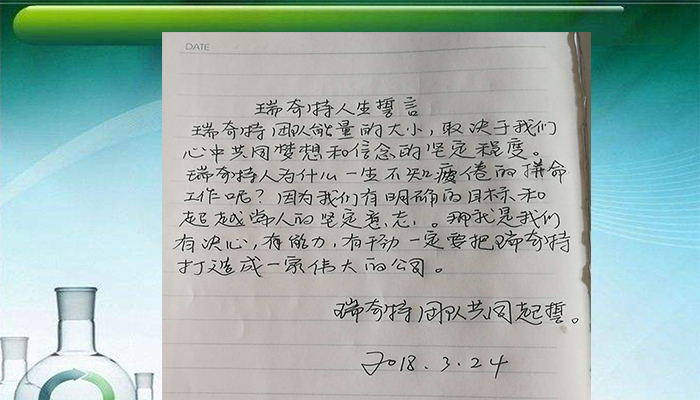 DATE
瑞奇特人生誓言
瑞奇特团队能量的大小，取决于我们
心中共同梦想和信念的坚定程度。
瑞奇特人为什么一生不知疲倦的拼命
工作呢？因为我们有明确的目标和
超越常人的坚定意志。那就是我们
有决心，有能力，有干劲一定要把瑞奇特
打造成一家伟大的公司。
瑞奇特团队共同起誓。
2018.3.24